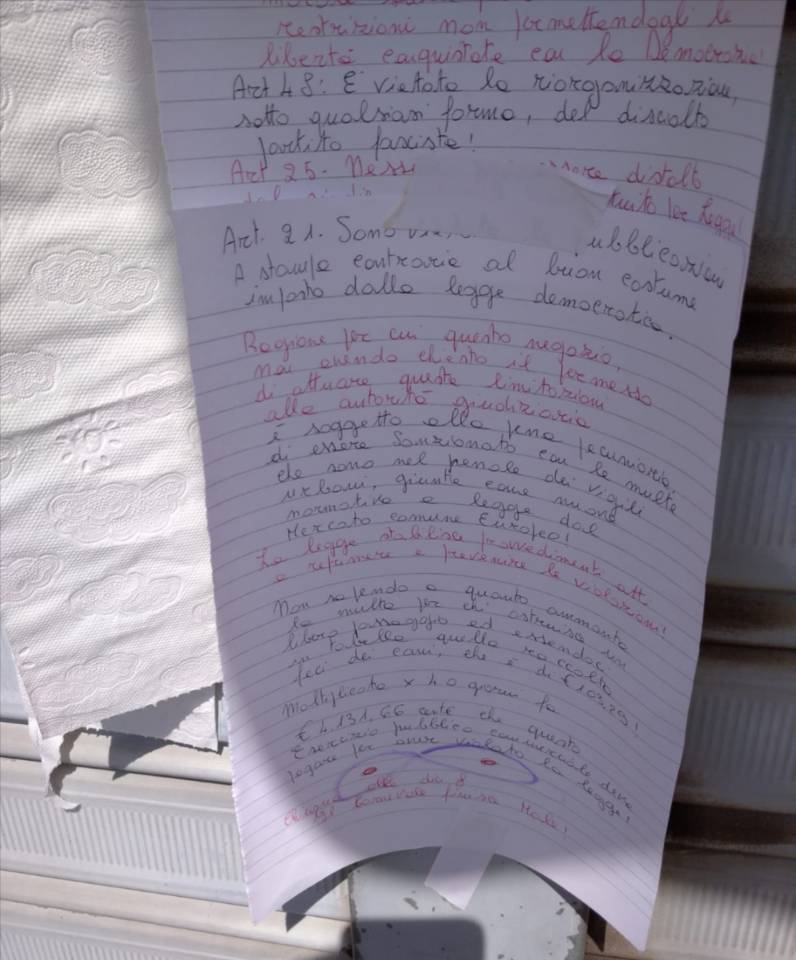 restrizioni non permettendogli le
libertà conquistate con la Democrazia!
Art 48: È vietata la riorganizzazione,
sotto qualsiasi forma, del disciolto
partito fascista!
Art 25. Ness essere distolto
per legge!
Art. 21. Sono ubblicazioni
A stampa contrarie al buon costume
imposto dalla legge democratica.
Ragione per cui questo negozio,
non avendo chiesto il permesso
di attuare queste limitazioni
alle autorità giudiziaria
è soggetto alla pena pecuniaria
di essere Sanzionato con le multe
che sono nel penale dei vigili
urbani, giuste come nuova
normativa e legge dal
Mercato comune Europeo!
La legge stabilisce provvedimenti att
a reprimere e prevenire le violazioni!
Non sapendo a quanto ammonta
la multa per chi ostruisce un
libero passaggio ed essendoci
in tabella quella raccolta
feci dei cani, che è di € 103,29!
Moltiplicato x 40 giorni fa
€ 4.131,66 che questo
Esercizio pubblico commerciale deve
pagare per aver violato la legge!
alle
Carnevale finisce Male!